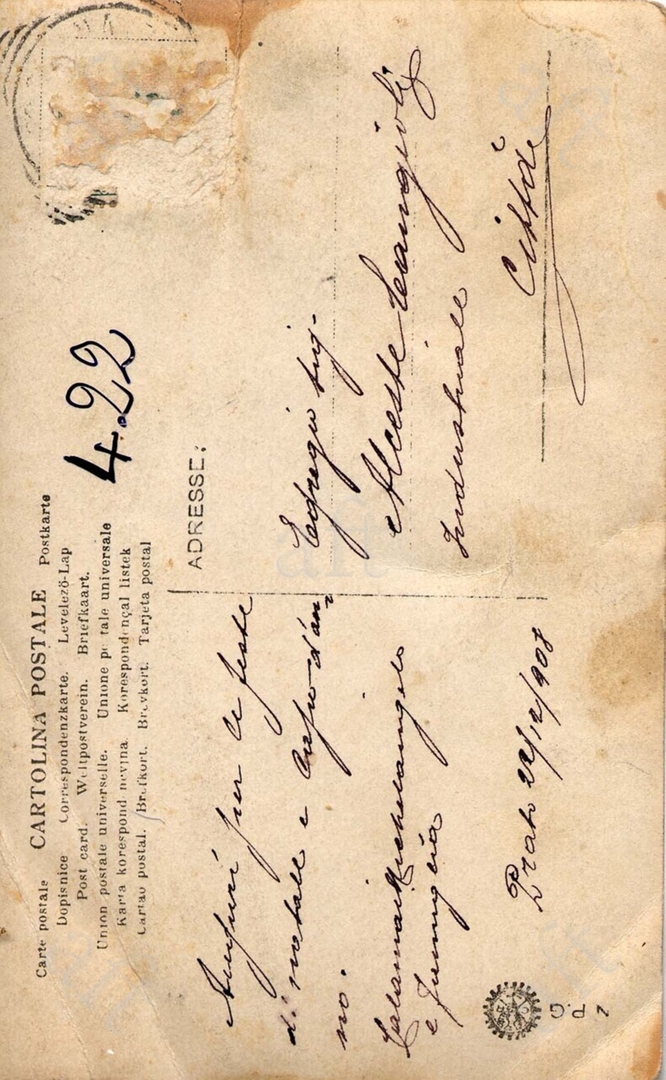 Carte postale CARTOLINA POSTALE Postkarte
Dopisnice Correspondenzkarte. Levelező-Lap
Post card. Weltpostverein. Briefkaart.
Union postale universelle. Unione postale universale
Karta korespondencyjna. Korespondenčal listek
Cartao postal. Brefkort. Brevkort. Tarjeta postal
4.22
ADRESSE:
Auguri per le feste
di natale e Capo d'an
no.
Calamai Michelangelo
e famiglia
Prato 22/12/908
Egregio Sig.
Alceste
Industriale
Città
2 P.G